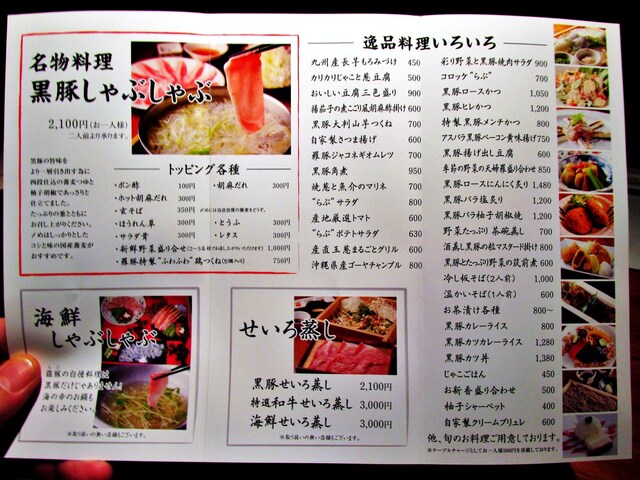 名物料理
黒豚しゃぶしゃぶ
2,100円(お一人様)
二人前より承ります。
黒豚の旨味を
より一層引き出す為に
四段仕込の蕎麦つゆと
柚子胡椒であっさりと
仕立てました。
たっぷりの葱とともに
お召し上がりください。
〆めはしっかりとした
コシと味の国産蕎麦が
おすすめです。
トッピング各種
・ポン酢 100円
・胡麻だれ 300円
・ホット胡麻だれ 300円
・玄そば 350円
〆めには当店自慢の蕎麦をどうぞ。
・ほうれん草 300円
・とうふ 300円
・サラダ菁 300円
・レタス 300円
・新鮮野菜盛り合せ 1,000円
・羅豚特製“ふわふわ”鶏つくね 750円
海鮮
しゃぶしゃぶ
羅豚の自慢料理は
黒豚だけじゃありません!
海の幸のお鍋も
お楽しみください。
※取り扱いの無い店舗もございます。
せいろ蒸し
黒豚せいろ蒸し 2,100円
特選和牛せいろ蒸し 3,000円
海鮮せいろ蒸し 3,000円
※取り扱いの無い店舗もございます。
逸品料理いろいろ
九州産長芋もろみづけ 450
カリカリじゃこと葱豆腐 600
おいしい豆腐三色盛り 900
揚茄子の煮こごり風胡麻酢掛け 600
黒豚大判山芋つくね 700
自家製さつま揚げ 600
羅豚ジャコネギオムレツ 700
黒豚角煮 950
焼葱と魚介のマリネ 700
“らぶ”サラダ 800
産地厳選トマト 600
“らぶ”ポテトサラダ 600
産直玉葱まるごとグリル 600
沖縄県産ゴーヤチャンプル 800
彩り野菜と黒豚焼肉サラダ 900
コロッケ“らぶ” 700
黒豚ロースかつ 1,050
黒豚ヒレかつ 1,200
特製黒豚メンチかつ 800
アスパラ黒豚ベーコン黄味揚げ 750
黒豚揚げ出し豆腐 600
季節の野菜の天婦羅盛り合わせ 850
黒豚ロースにんにく炙り 1,480
黒豚バラ塩炙り 1,200
黒豚バラ柚子胡椒焼 1,200
野菜たっぷり茶碗蒸し 700
酒蒸し黒豚の粒マスタード掛け 800
黒豚とたっぷり野菜の筑前煮 600
冷し板そば(2人前) 1,000
温かいそば(1人前) 600
お茶漬け各種 800～
黒豚カレーライス 800
黒豚カツカレーライス 1,280
黒豚カツ丼 1,380
じゃこごはん 450
お新香盛り合わせ 500
柚子シャーベット 400
自家製クリームブリュレ 600
他、旬のお料理ご用意しております。
※テーブルチャージとしてお一人様500円を頂戴しております。